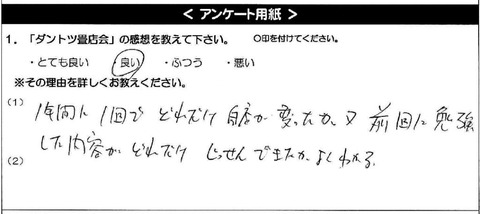 < アンケート用紙 >
1. 「ダントツ畳店会」の感想を教えて下さい。 ○印を付けてください。
・とても良い ・良い ・ふつう ・悪い
※その理由を詳しくお教えください。
(1)
1年間に1回で どれだけ 自店が 変ったか、又 前回に勉強
した内容が どれだけ じっせんできたか よくわかる。
(2)